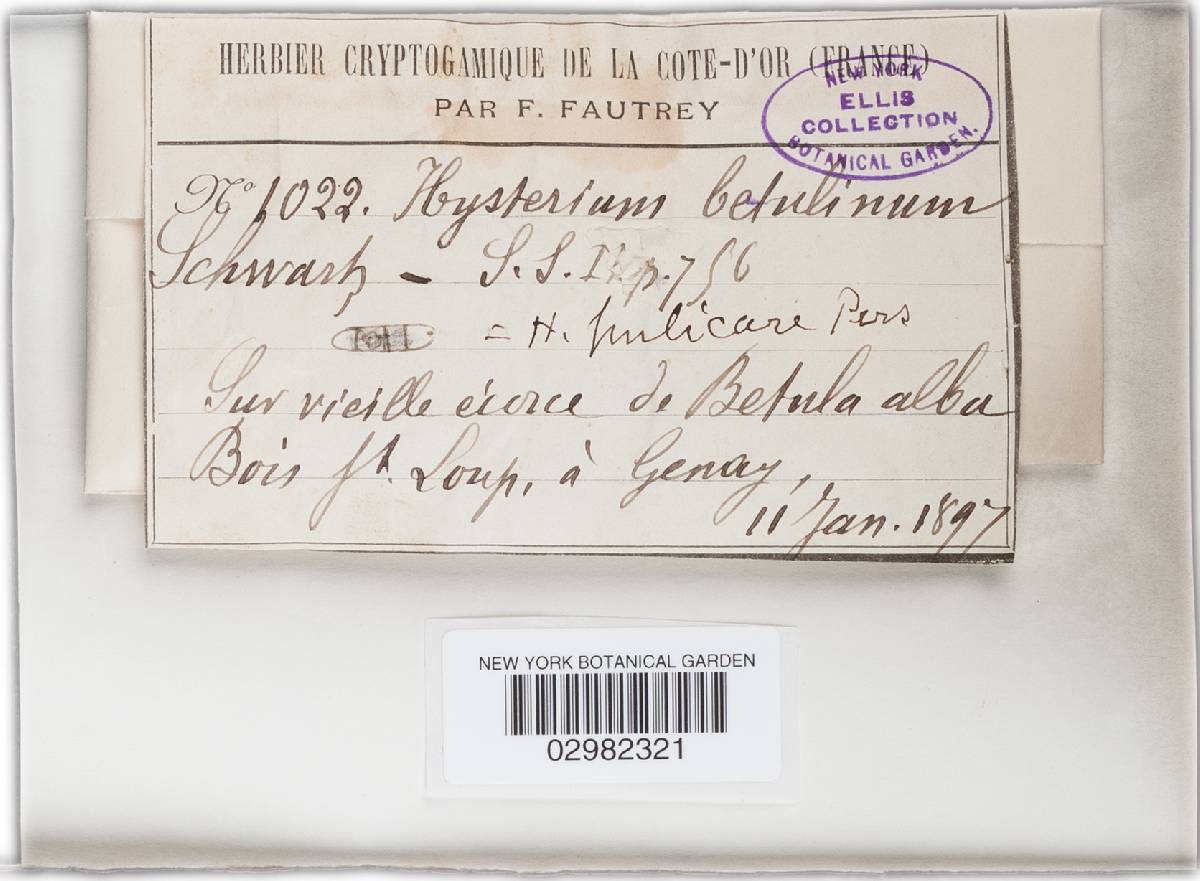 HERBIER CRYPTOGAMIQUE DE LA COTE-D'OR (FRANCE)
PAR F. FAUTREY
NEW YORK
ELLIS
COLLECTION
BOTANICAL GARDEN.
N° 1022. Hysterium betulinum
Schwartz – S. S. II. p. 756
= H. pulicare Pers
Sur vieille écorce de Betula alba
Bois St. Loup, à Genay,
11 Jan. 1897
NEW YORK BOTANICAL GARDEN
02982321